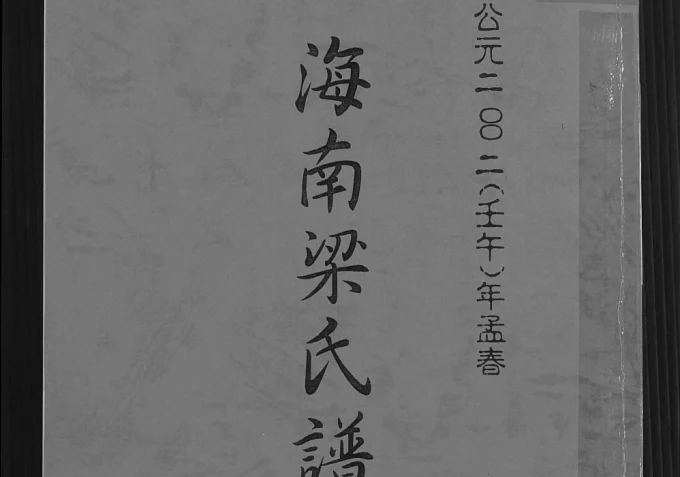 公元二〇〇二(壬午)年孟春
海南梁氏譜